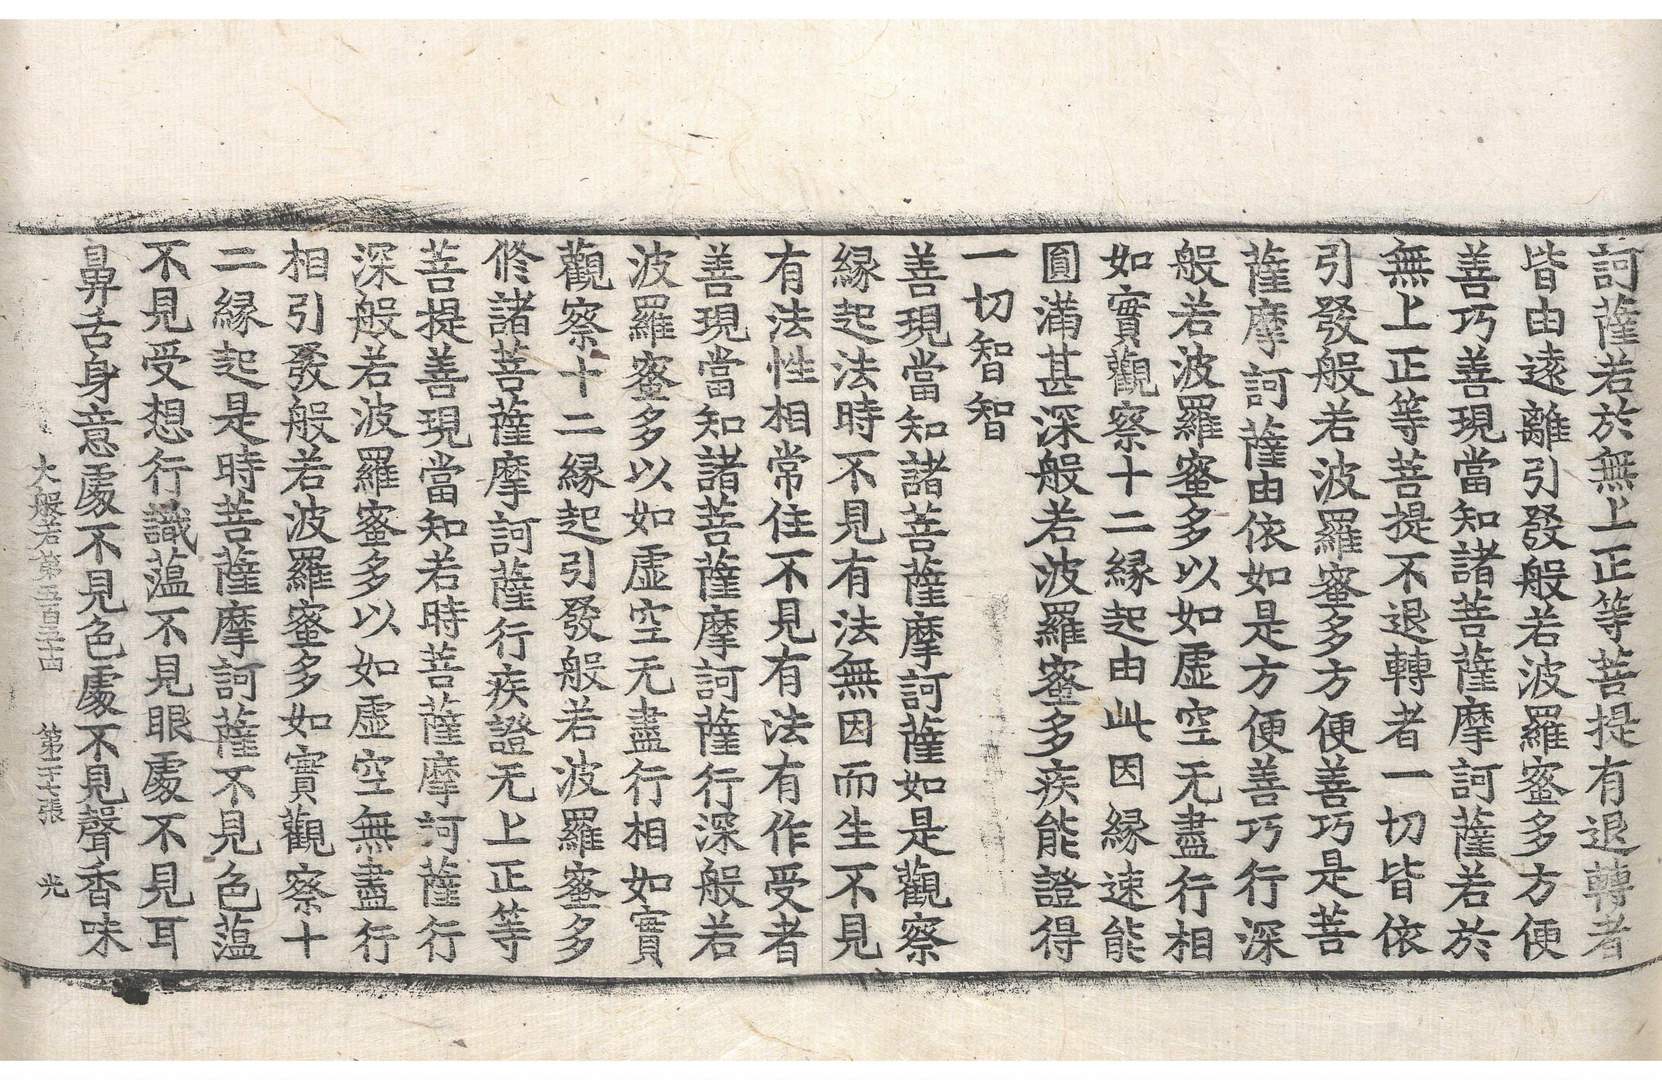 訶薩若於無上正等菩提有退轉者
皆由遠離引發般若波羅蜜多方便
善巧善現當知諸菩薩摩訶薩若於
無上正等菩提不退轉者一切皆依
引發般若波羅蜜多方便善巧是菩
薩摩訶薩由依如是方便善巧行深
般若波羅蜜多以如虛空无盡行相
如實觀察十二緣起由此因緣速能
圓滿甚深般若波羅蜜多疾能證得
一切智智
善現當知諸菩薩摩訶薩如是觀察
緣起法時不見有法無因而生不見
有法性相常住不見有法有作受者
善現當知諸菩薩摩訶薩行深般若
波羅蜜多以如虛空无盡行相如實
觀察十二緣起引發般若波羅蜜多
修諸菩薩摩訶薩行疾證无上正等
菩提善現當知若時菩薩摩訶薩行
深般若波羅蜜多以如虛空無盡行
相引發般若波羅蜜多如實觀察十
二緣起是時菩薩摩訶薩不見色薀
不見受想行識薀不見眼處不見耳
鼻舌身意處不見色處不見聲香味
大般若第五百二十四 第二十七張 光